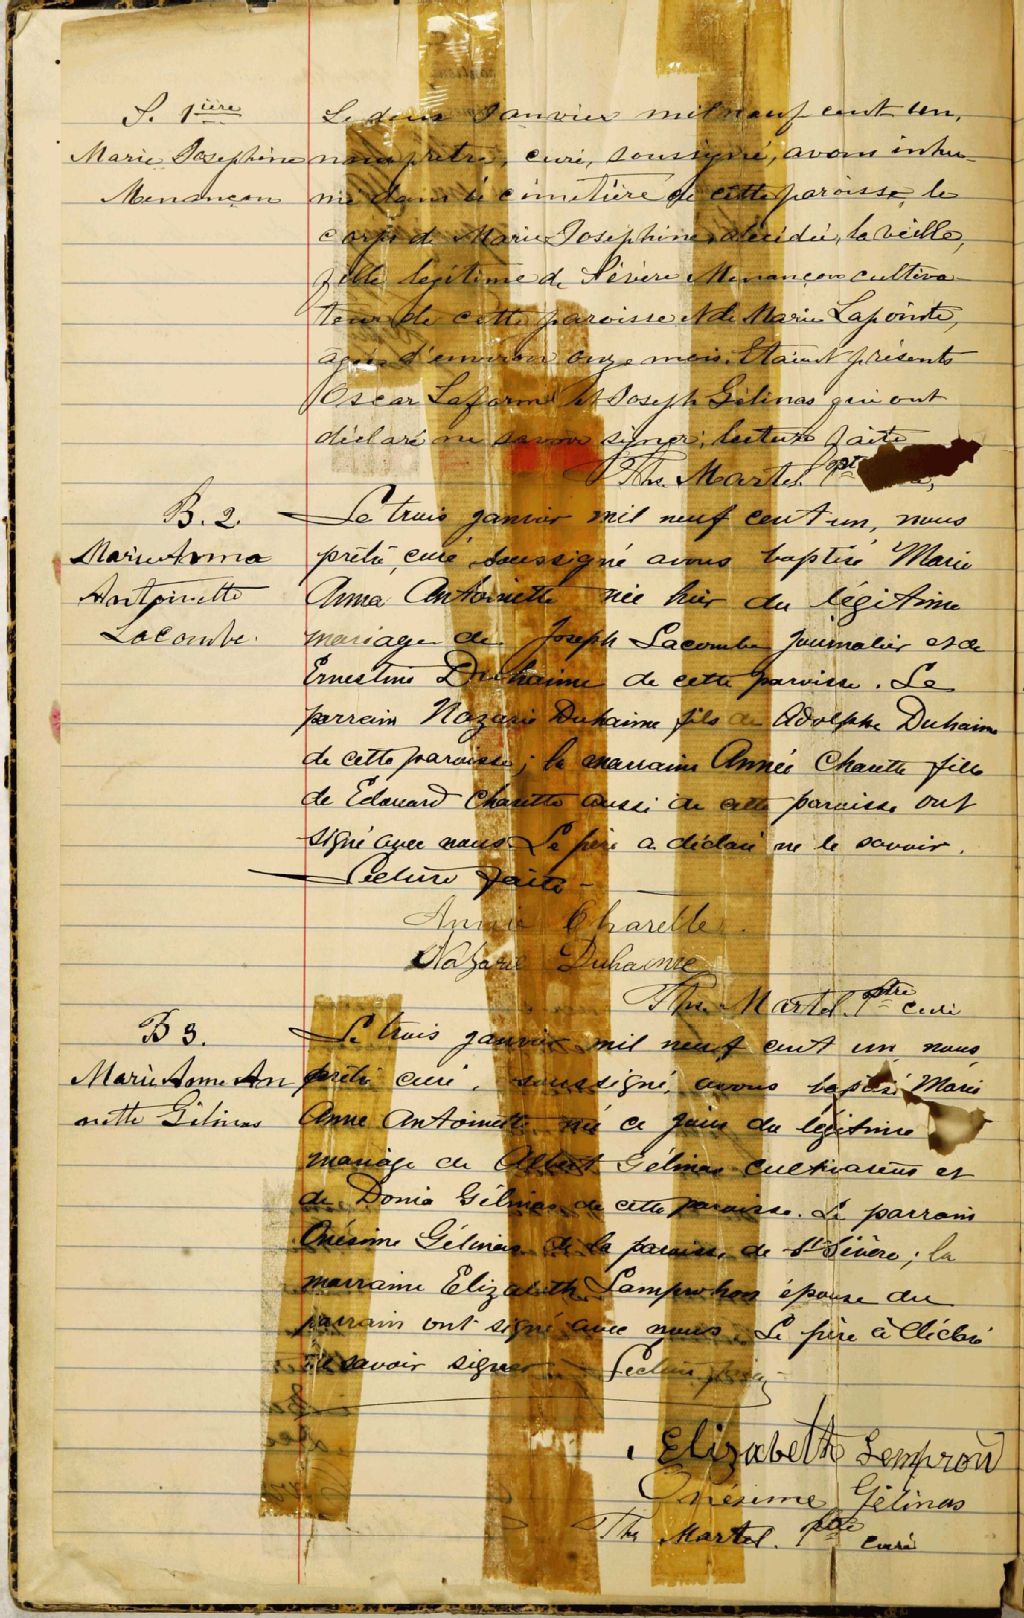 S. 1ière
Marie Josephine
Menançon
Le deux Janvier mil neuf cent un,
nous prêtre, curé, soussigné, avons inhu-
mé dans le cimetière de cette paroisse, le
corps de Marie Josephine, décédée, la veille,
fille légitime de Sévère Menançon cultiva-
teur de cette paroisse et de Marie Lapointe,
agée d'environ onze mois. Etaient présents
Oscar Laforme et Joseph Gélinas qui ont
déclaré ne savoir signer; lecture faite
Ths. Martel. Ptre
B. 2.
Marie Anna
Antoinette
Lacombe.
Le trois janvier mil neuf cent un, nous
prêtre, curé, soussigné avons baptisé Marie
Anna Antoinette née hier du légitime
mariage de Joseph Lacombe journalier et de
Ernestine Duhaime de cette paroisse. Le
parrain Nazaire Duhaime fils de Adolphe Duhaime
de cette paroisse; la marraine Annie Charette fille
de Edouard Charette aussi de cette paroisse ont
signé avec nous. Le père a déclaré ne le savoir.
Lecture faite -
Annie Charette.
Nazaire Duhaime
Ths. Martel. Ptre curé
B 3.
Marie Anne An
nette Gélinas
Le trois janvier mil neuf cent un nous
prêtre curé, soussigné, avons baptisé Marie
Anne Antoinette née ce jour du légitime
mariage de Albert Gélinas cultivateur et
de Donia Gélinas de cette paroisse. Le parrain
Onésime Gélinas de la paroisse de St Sévère; la
marraine Elizabeth Lamprohon épouse du
parrain ont signé avec nous. Le père à déclaré
ne savoir signer. Lecture faite
Elizabeth Lempron
Onésime Gélinas
Ths Martel. Ptre curé